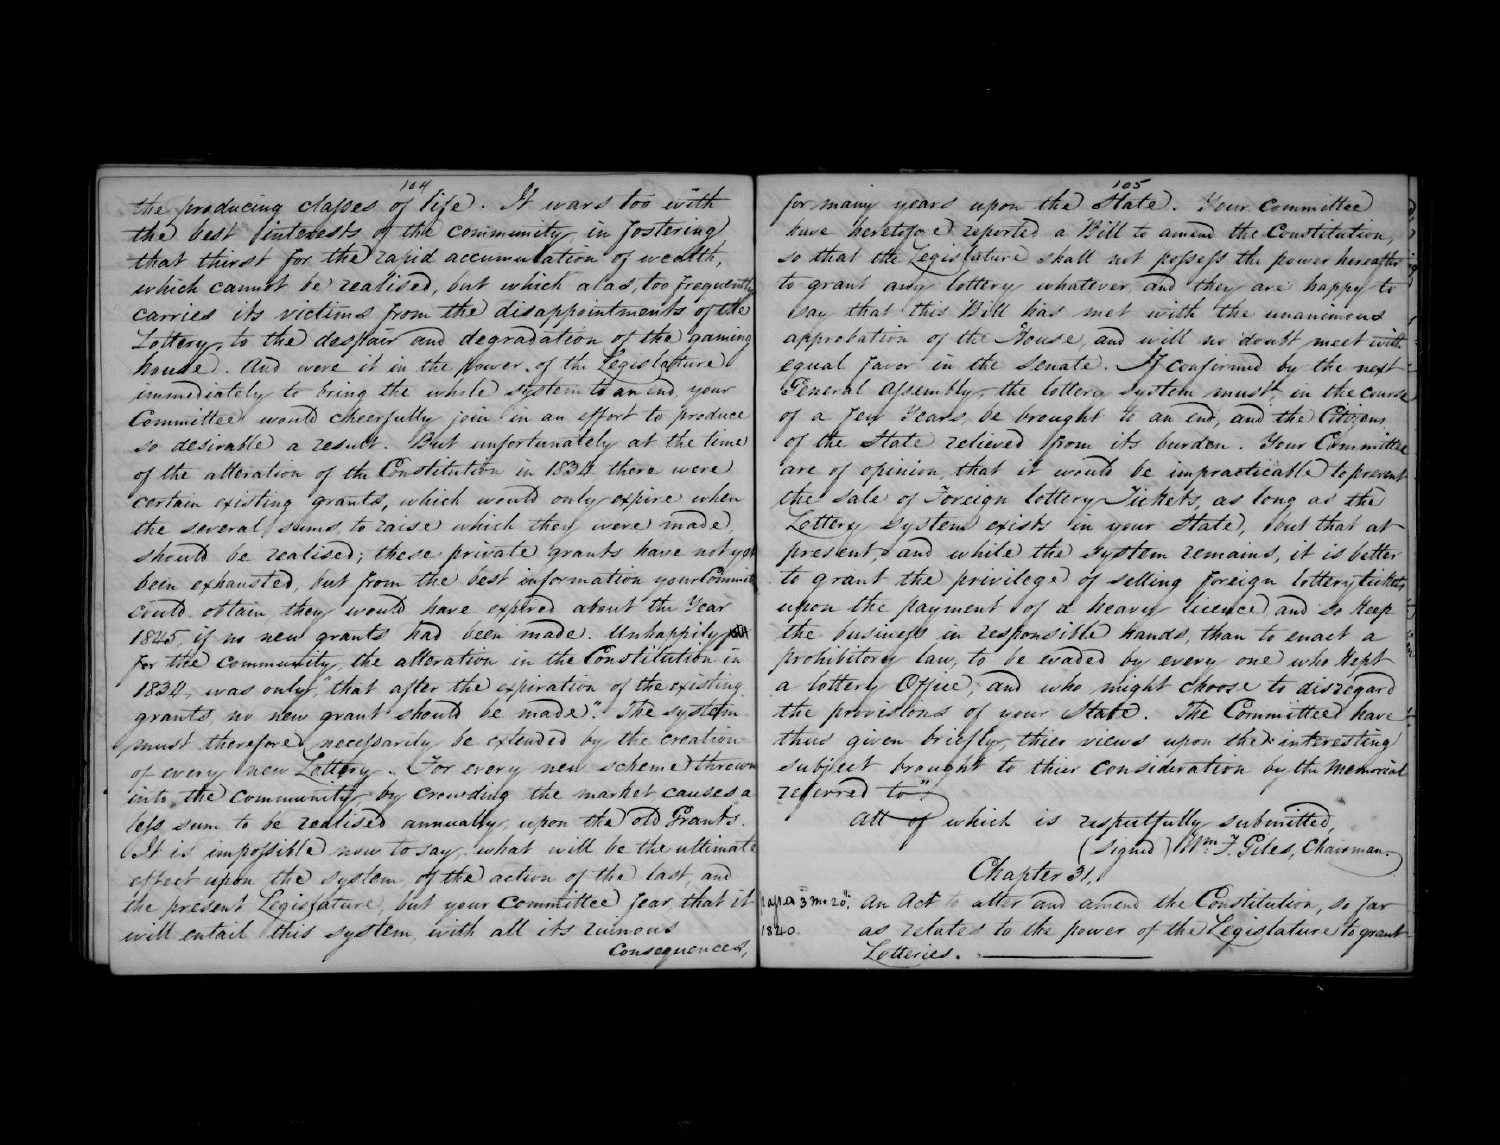 104
the producing classes of life. It wars too with
the best interests of the community, in fostering
that thirst for the rapid accumulation of wealth,
which cannot be realised, but which alas, too frequently
carries its victims from the disappointments of the
Lottery, to the despair and degradation of the gaming
house. And were it in the power of the Legislature
immediately to bring the whole system to an end, your
Committee would cheerfully join in an effort to produce
so desirable a result. But unfortunately at the time
of the alteration of the Constitution in 1834 there were
certain existing grants, which would only expire when
the several sums, to raise which they were made,
should be realised; these private grants have not yet
been exhausted, but from the best information your Committe
could obtain they would have expired about the Year
1845, if no new grants had been made. Unhappily
for the community, the alteration in the Constitution in
1834, was only, "that after the expiration of the existing
grants, no new grant should be made". The system
must therefore necessarily be extended by the creation
of every new Lottery. For every new scheme thrown
into the Community, by crowding the market, causes a
less sum to be realised annually, upon the old Grants.
It is impossible now to say, what will be the ultimate
effect upon the system, of the action of the last, and
the present Legislature, but your Committee fear, that it
will entail this system, with all its ruinous
Consequences,
105
for many years upon the State. Your Committee
have heretofore reported a Bill to amend the Constitution,
so that the Legislature shall not possess the power hereafter
to grant any lottery whatever, and they are happy to
say that this Bill has met with the unanimous
approbation of the House, and will no doubt meet with
equal favor in the Senate. If confirmed by the next
General Assembly, the lottery system must, in the course
of a few Years, be brought to an end, and the Citizens
of the State relieved from its burden. Your Committee
are of opinion, that it would be impracticable to prevent
the sale of Foreign lottery Tickets, as long as the
Lottery System exists in your State, but that at
present, and while the system remains, it is better
to grant the privilege of selling foreign lottery tickets
upon the payment of a heavy licence and so keep
the business in responsible hands, than to enact a
prohibitory law, to be evaded by every one who kept
a lottery Office, and who might choose to disregard
the provisions of your State. The Committee have
thus given briefly, thier views upon the interesting
subject brought to thier consideration by the memorial
referred to".
All of which is respectfully submitted,
(Signed) Wm. F. Giles, Chairman.
Chapter 31,
3 mo 20th. An Act to alter and amend the Constitution, so far
1840. as relates to the power of the Legislature to grant
Lotteries.